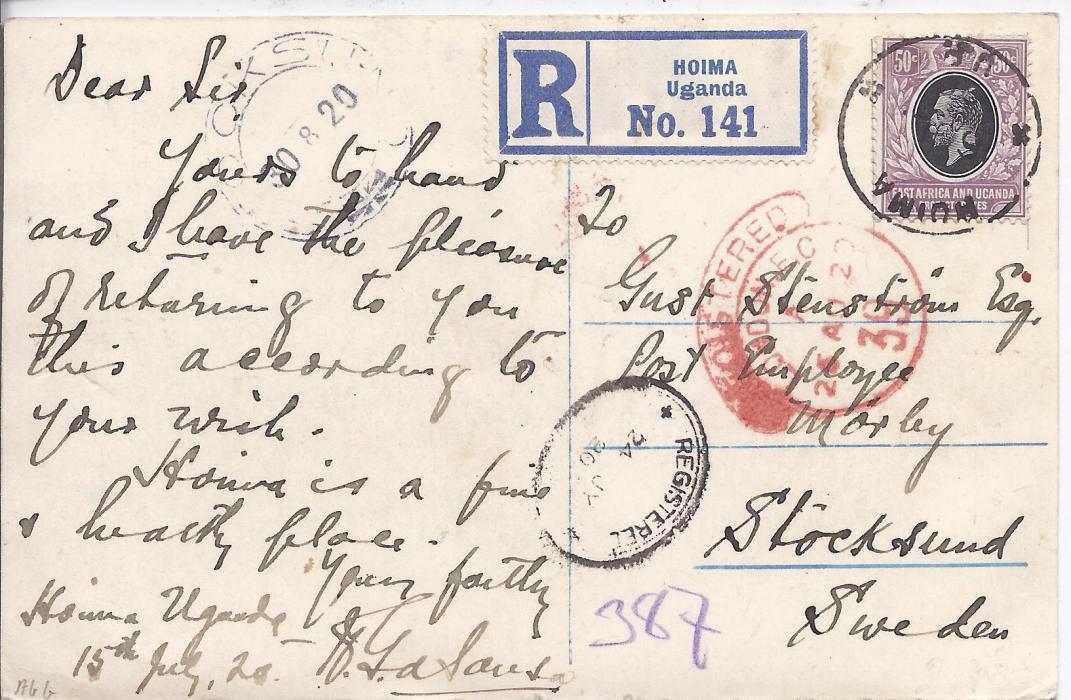 Dear Sir
Yours to hand
and I have the pleasure
of returning to you
this according to
your wish.
Hoima is a fine
& healthy place.
Yours faithly
Hoima Uganda
15th July, 20.
de Souza
A66
R
HOIMA
Uganda
No. 141
50c 50c
EAST AFRICA AND UGANDA
PROTECTORATES
HOIMA
30 8 20
To
Gust Stenström Esq.
Post Employee
Mörby
Stocksund
Sweden
REGISTERED
LONDON E.C.
25 AU 20
39
REGISTERED
24
JY
20
387